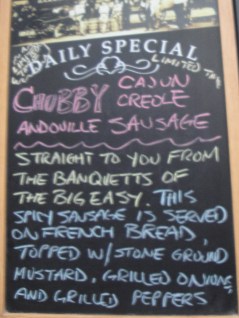 DAILY SPECIAL
LIMITED TIME
CHUBBY CAJUN
CREOLE
ANDOUILLE SAUSAGE
STRAIGHT TO YOU FROM
THE BANQUETTS OF
THE BIG EASY. THIS
SPICY SAUSAGE IS SERVED
ON FRENCH BREAD,
TOPPED W/STONE GROUND
MUSTARD, GRILLED ONIONS,
AND GRILLED PEPPERS